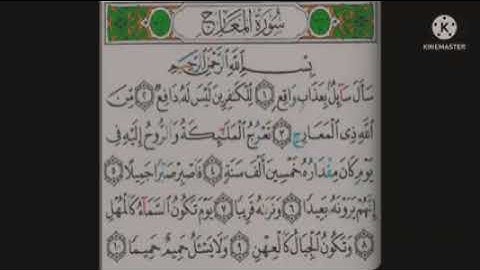 سُورَةُ المَعَارِجِ
بِسْمِ اللَّهِ الرَّحْمَٰنِ الرَّحِيمِ
سَأَلَ سَآئِلٌۢ بِعَذَابٍ وَاقِعٍ ۝١ لِّلْكَٰفِرِينَ لَيْسَ لَهُۥ دَافِعٌ ۝٢ مِّنَ
ٱللَّهِ ذِى ٱلْمَعَارِجِ ۝٣ تَعْرُجُ ٱلْمَلَٰٓئِكَةُ وَٱلرُّوحُ إِلَيْهِ فِى
يَوْمٍ كَانَ مِقْدَارُهُۥ خَمْسِينَ أَلْفَ سَنَةٍ ۝٤ فَٱصْبِرْ صَبْرًا جَمِيلًا ۝٥
إِنَّهُمْ يَرَوْنَهُۥ بَعِيدًا ۝٦ وَنَرَىٰهُ قَرِيبًا ۝٧ يَوْمَ تَكُونُ ٱلسَّمَآءُ كَٱلْمُهْلِ
۝٨ وَتَكُونُ ٱلْجِبَالُ كَٱلْعِهْنِ ۝٩ وَلَا يَسْـَٔلُ حَمِيمٌ حَمِيمًا ۝١٠
KINEMASTER